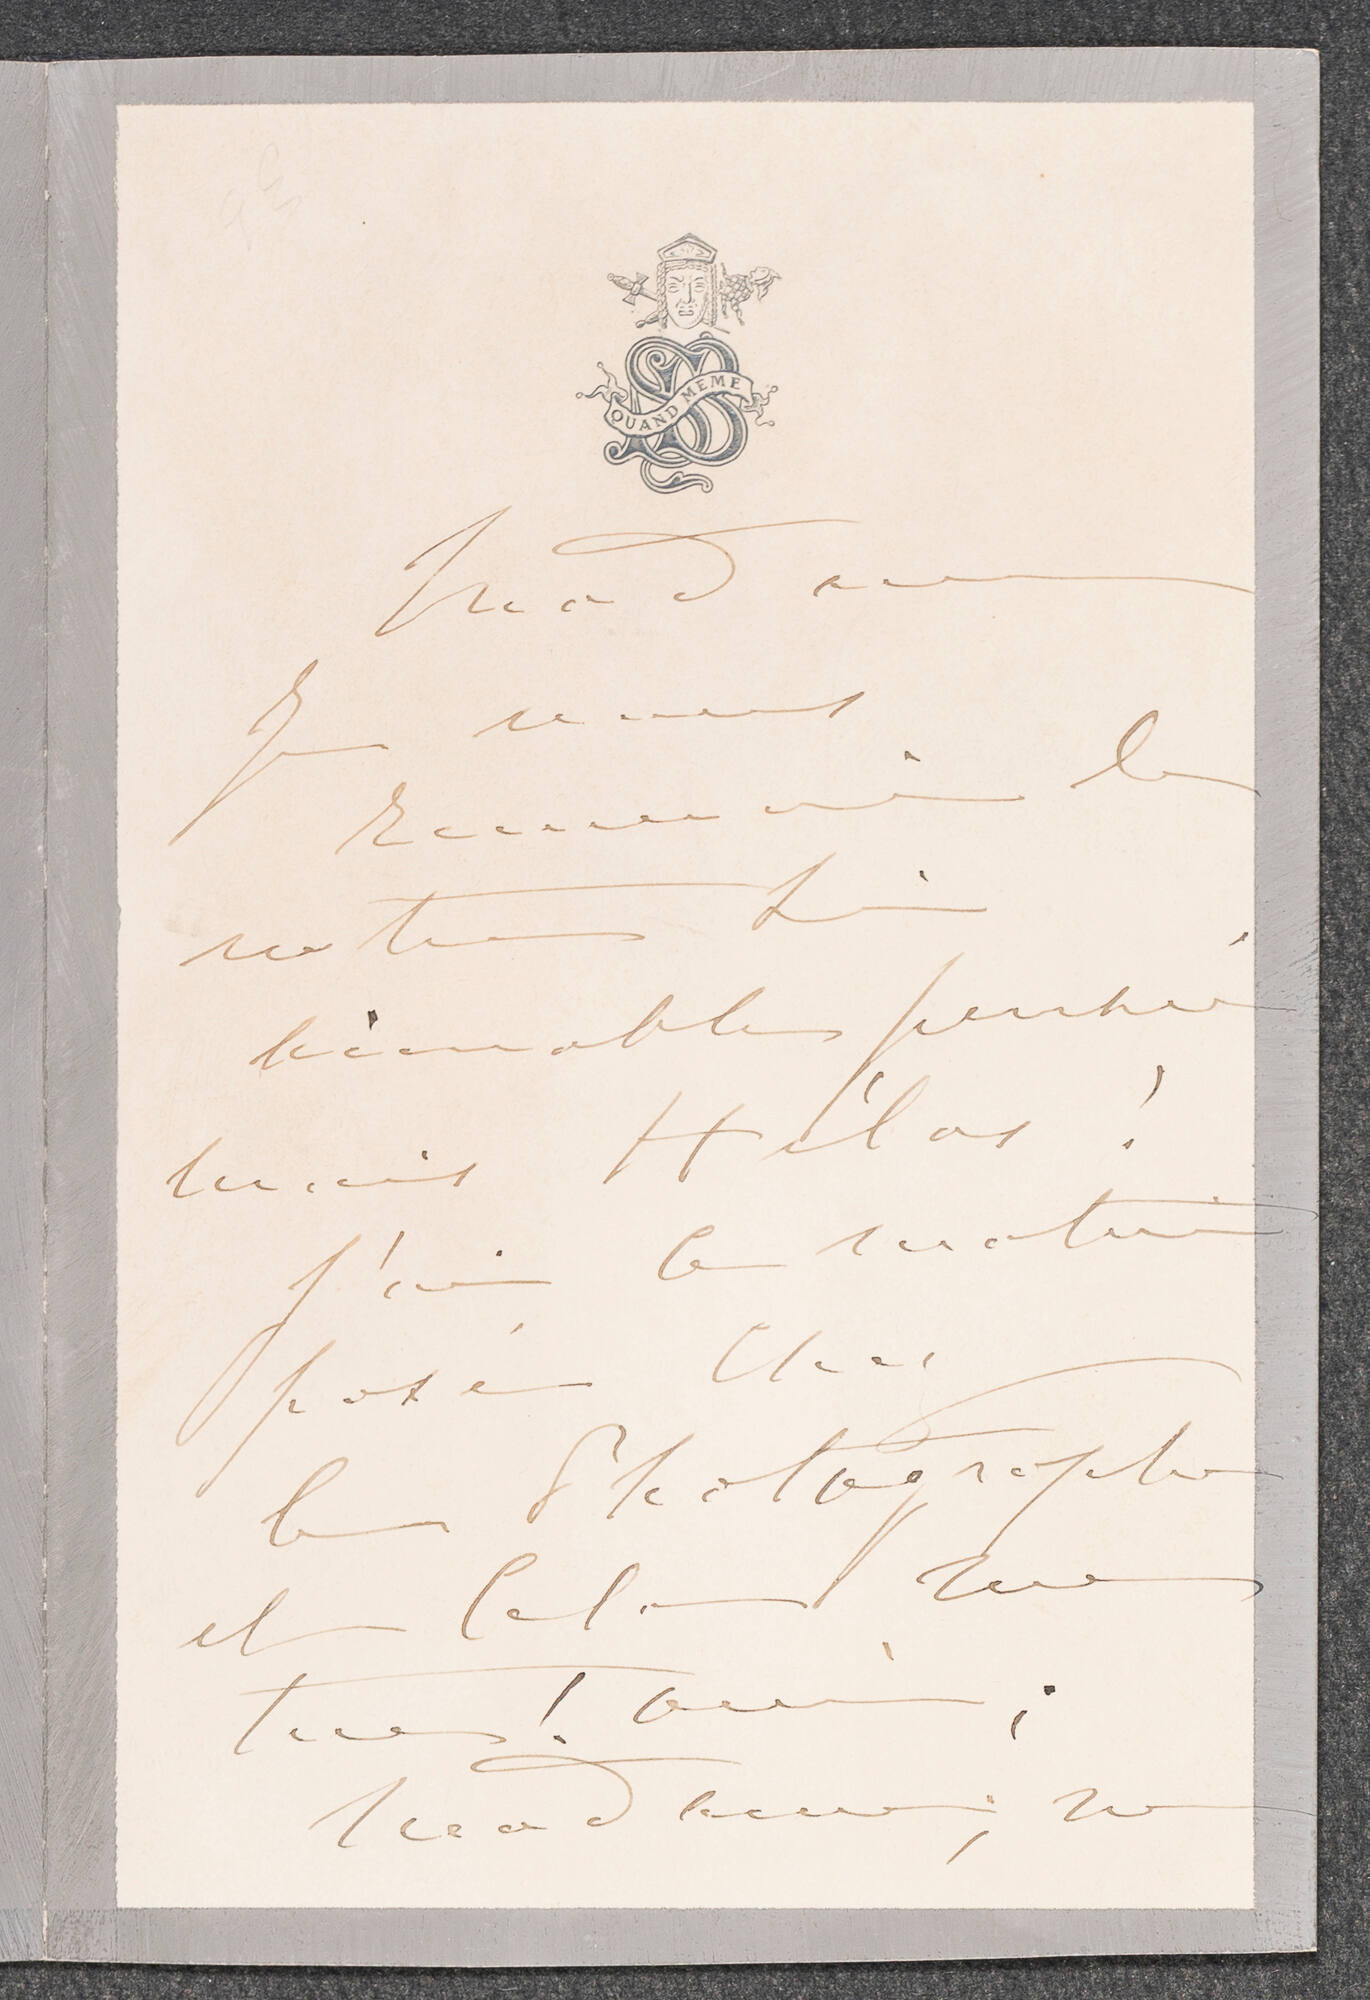 QUAND MEME
Madame
Je vous
remercie de
votre si
aimable pensée
mais Hélas!
j'ai ce matin
posé chez
le Photographe
et cela me
tue! aussi,
Madame, ne